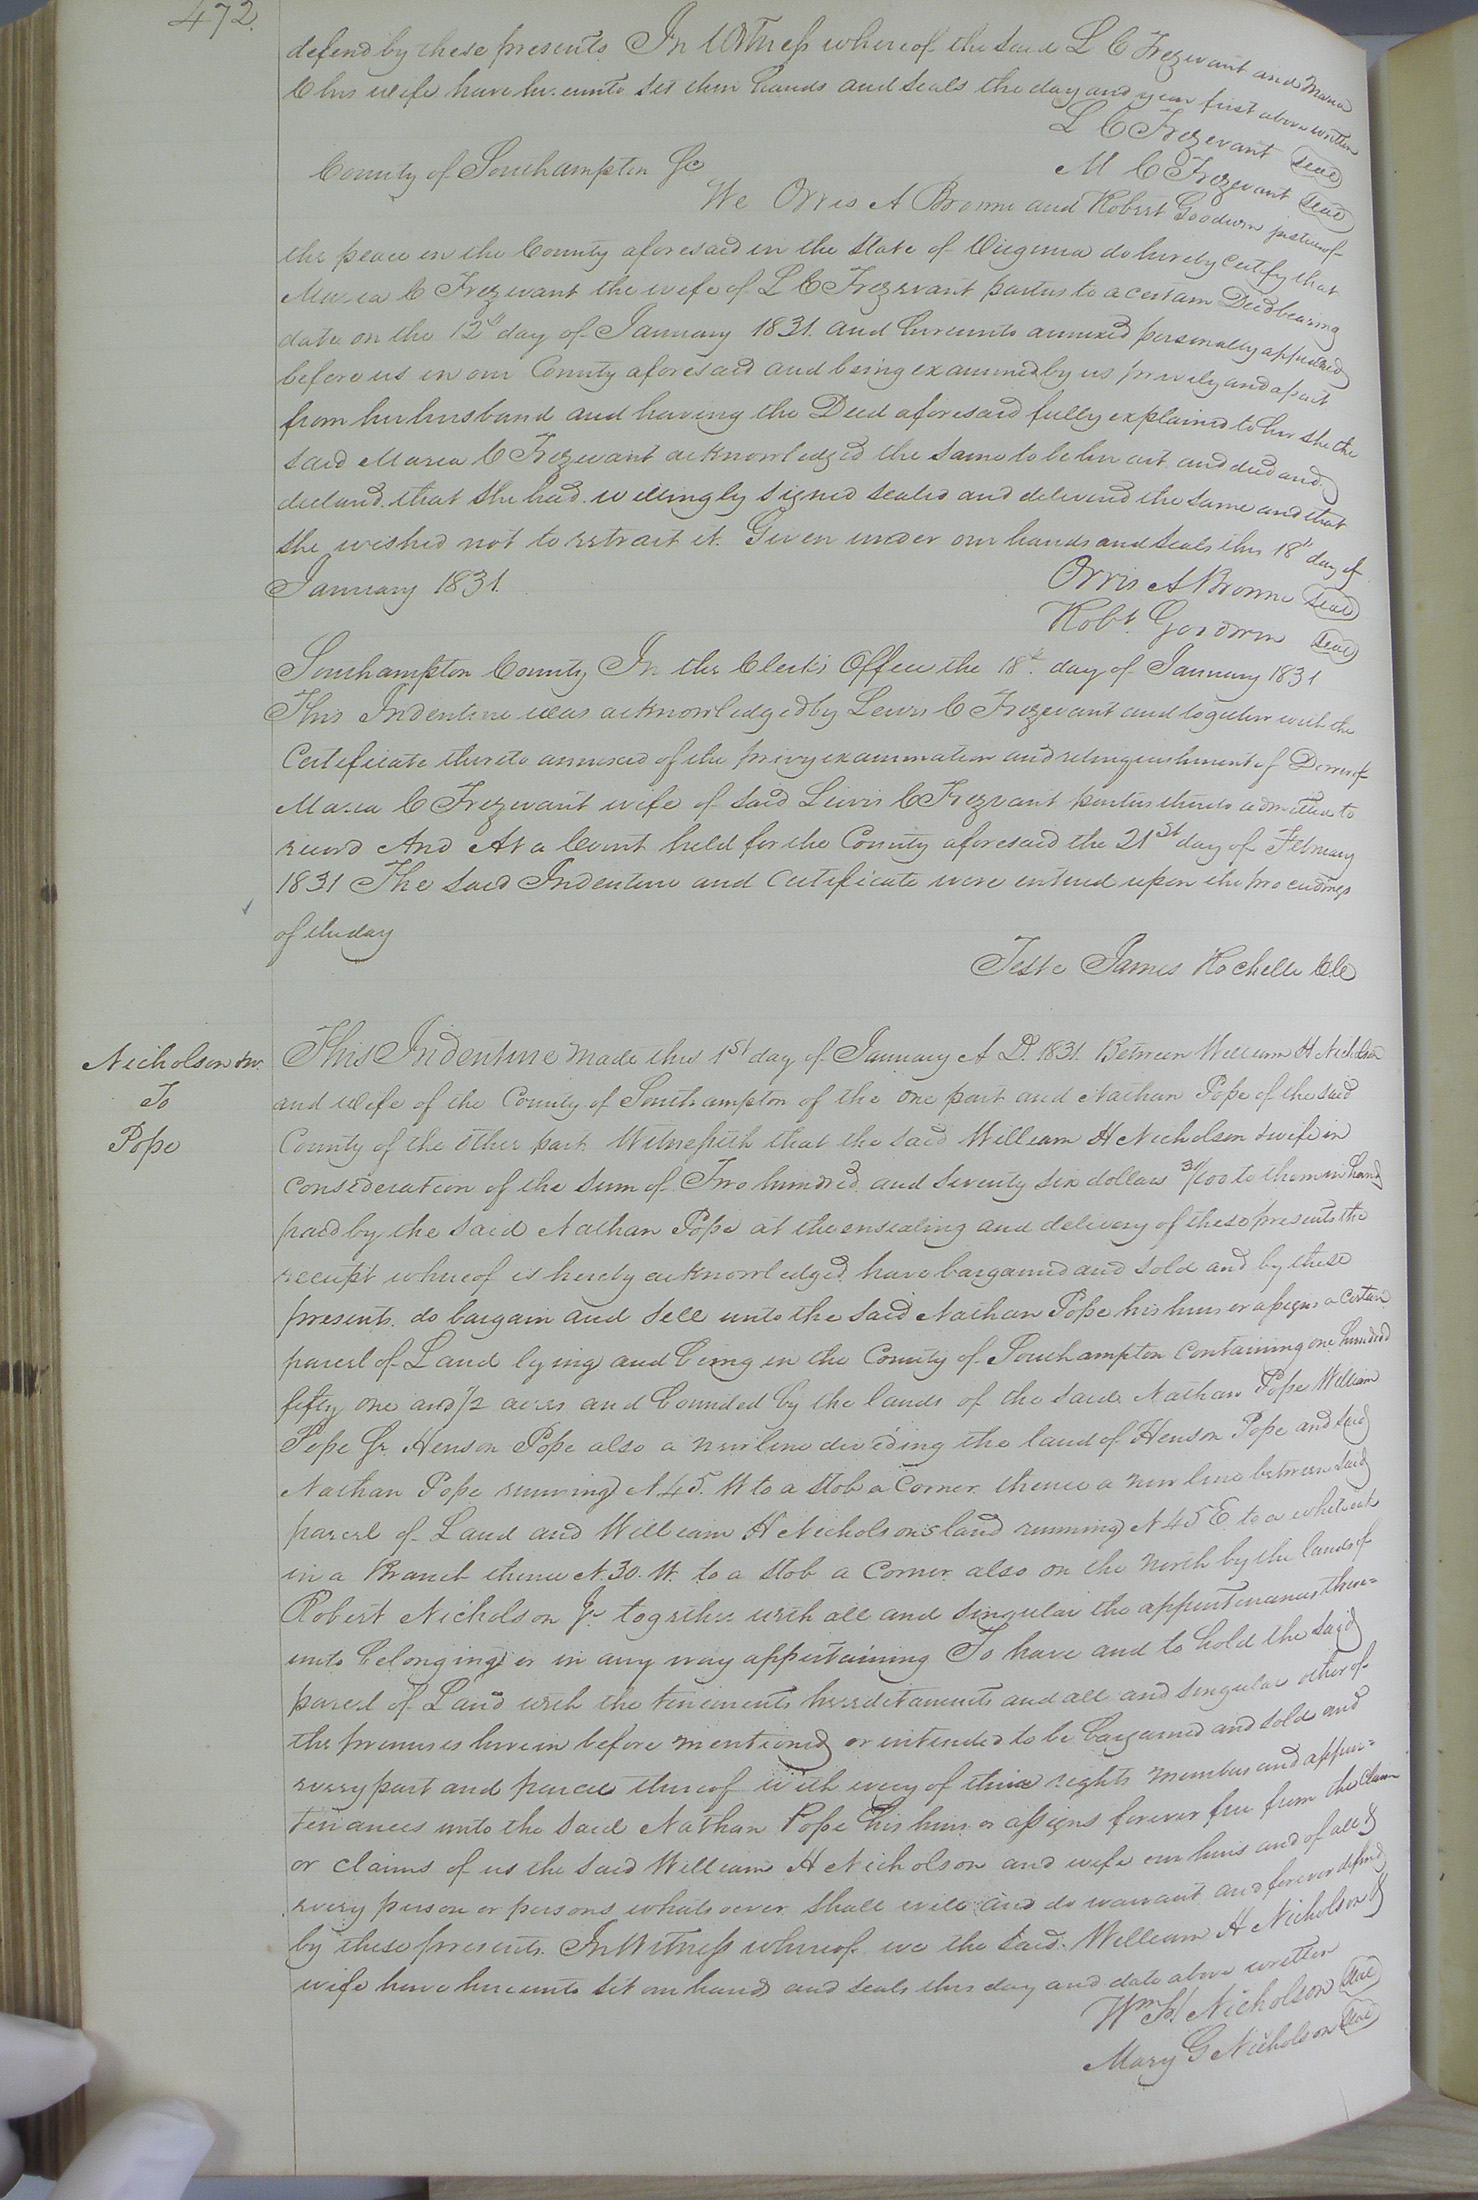 472.
defend by these presents In Witness whereof the said L C Trezevant and Maria
C his wife have hereunto set their hands and seals the day and year first above written
L C Trezevant seal
M C Trezevant seal
County of Southampton Sc
We Orris A Browne and Robert Goodwin justices of
the peace in the County aforesaid in the State of Virginia do hereby certify that
Maria C Trezevant the wife of L C Trezevant parties to a certain Deed bearing
date on the 12th day of January 1831. and hereunto annexed personally appeared
before us in our County aforesaid and being examined by us privily and apart
from her husband and having the Deed aforesaid fully explained to her she the
said Maria C Trezevant acknowledged the same to be her act and deed and
declared that she had willingly signed sealed and delivered the same and that
she wished not to retract it. Given under our hands and seals this 18th day of
January 1831.
Orris A Browne seal
Robt. Goodwin seal
Southampton County In the Clerk's Office the 18th day of January 1831
This Indenture was acknowledged by Lewis C Trezevant and together with the
Certificate thereto annexed of the privy examination and relinquishment of Dower of
Maria C Trezevant wife of said Lewis C Trezevant parties thereto admitted to
record And At a Court held for the County aforesaid the 21st day of February
1831 The said Indenture and Certificate were entered upon the proceedings
of the day
Teste James Rochelle Clk
Nicholson & w.
To
Pope
This Indenture made this 1st day of January A D. 1831. Between William H Nicholson
and wife of the County of Southampton of the one part and Nathan Pope of the said
County of the other part Witnesseth that the said William H Nicholson & wife in
consideration of the sum of Two hundred and seventy six dollars 30/100 to them in hand
paid by the said Nathan Pope at the ensealing and delivery of these presents the
receipt whereof is hereby acknowledged have bargained and sold and by these
presents do bargain and sell unto the said Nathan Pope his heirs or assigns a certain
parcel of Land lying and being in the County of Southampton containing one hundred
fifty one and 1/2 acres and bounded by the lands of the said Nathan Pope William
Pope Jr. Henson Pope also a new line dividing the land of Henson Pope and said
Nathan Pope running N 45. W to a stob a corner thence a new line between said
parcel of Land and William H Nicholson's land running N 45 E to a white oak
in a Branch thence N. 30. W. to a stob a corner also on the north by the lands of
Robert Nicholson Jr together with all and singular the appurtenances there=
unto belonging or in any way appertaining To have and to hold the said
parcel of Land with the tenements hereditaments and all and singular other of
the premises herein before mentioned or intended to be bargained and sold and
every part and parcel thereof with every of their rights members and appur=
tenances unto the said Nathan Pope his heirs or assigns forever free from the claim
or claims of us the said William H Nicholson and wife our heirs and of all &
every person or persons whatsoever shall will and do warrant and forever defend
by these presents. In Witness whereof we the said William H Nicholson &
wife have hereunto set our hands and seals this day and date above written
Wm H. Nicholson seal
Mary G Nicholson seal